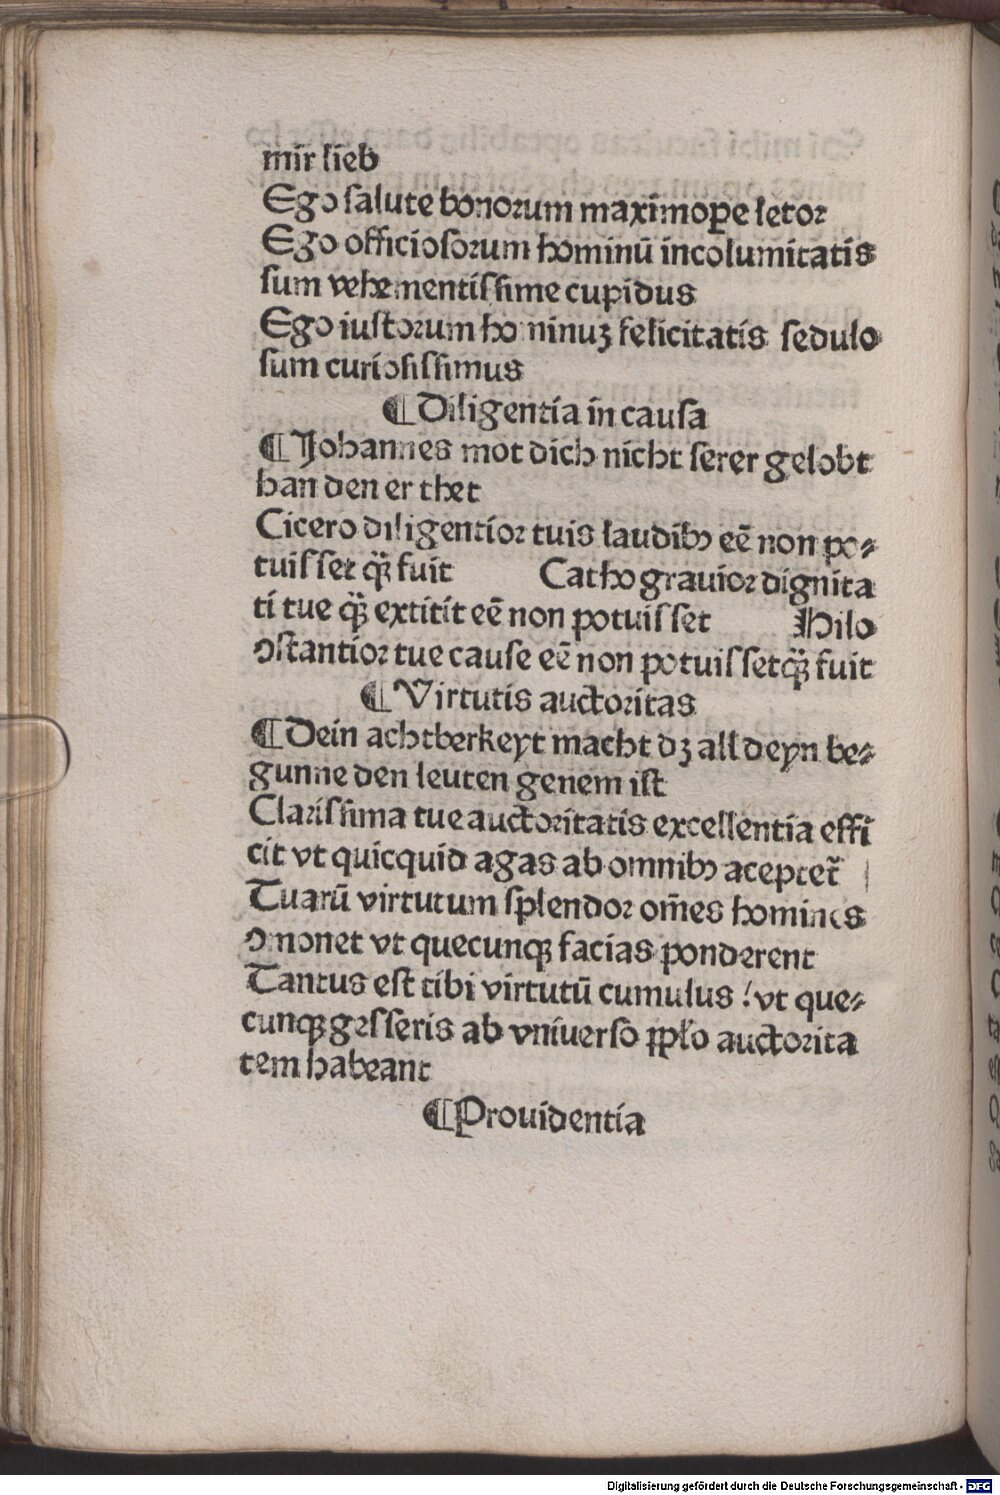 mir lieb
Ego salute bonorum maximope letor
Ego officiosorum hominū incolumitatis
sum vehementissime cupidus
Ego iustorum ho ninuꝫ felicitatis sedulo
sum curiosissimus
¶ Diligentia in causa
¶ Johannes mot dich nicht serer gelobt
han den er thet
Cicero diligentior tuis laudibꝰ eē non po⸗
tuisset qͣꝫ fuit Catho grauior dignita
ti tue qͣꝫ extitit eē non potuisset Philo
ostantior tue cause eē non potuisset qͣꝫ fuit
¶ Virtutis auctoritas
¶ Dein achtberkeyt macht dꝫ all deyn be⸗
gunne den leuten genem ist
Clarissima tue auctoritatis excellentia effi
cit vt quicquid agas ab omnibꝰ aceptet̃
Tuarū virtutum splendor om̄es homines
omonet vt quecunqꝫ facias ponderent
Tantus est tibi virtutū cumulus / vt que⸗
cunqꝫ gesseris ab vniuerso ppl̄o auctorita
tem habeant
¶ Prouidentia
Digitalisierung gefördert durch die Deutsche Forschungsgemeinschaft - DFG